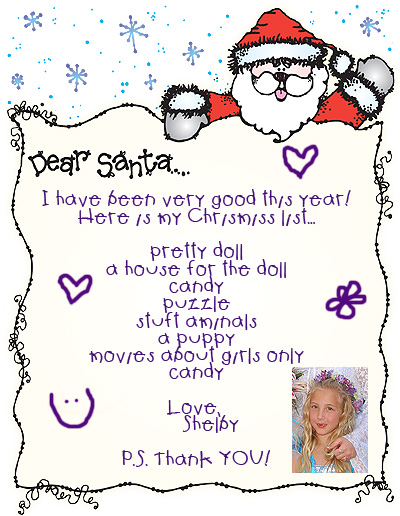 Dear Santa...
I have been very good this year!
Here is my Chrismiss list...
pretty doll
a house for the doll
candy
puzzle
stuft aminals
a puppy
movies about girls only
candy
Love,
Shelby
P.S. Thank YOU!